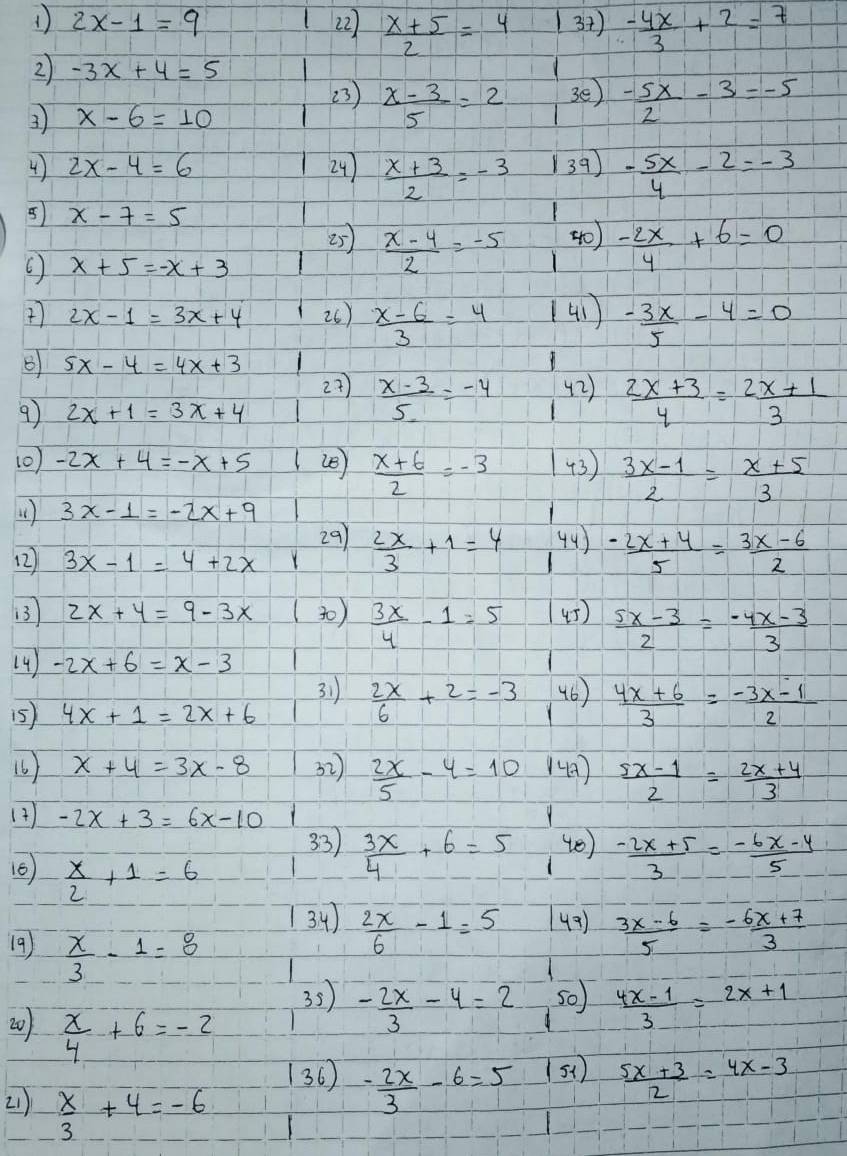 1) 2x - 1 = 9
2) -3x + 4 = 5
3) x - 6 = 10
4) 2x - 4 = 6
5) x - 7 = 5
6) x + 5 = -x + 3
7) 2x - 1 = 3x + 4
8) 5x - 4 = 4x + 3
9) 2x + 1 = 3x + 4
10) -2x + 4 = -x + 5
11) 3x - 1 = -2x + 9
12) 3x - 1 = 4 + 2x
13) 2x + 4 = 9 - 3x
14) -2x + 6 = x - 3
15) 4x + 1 = 2x + 6
16) x + 4 = 3x - 8
17) -2x + 3 = 6x - 10
18) x/2 + 1 = 6
19) x/3 - 1 = 8
20) x/4 + 6 = -2
21) x/3 + 4 = -6
22) (x + 5)/2 = 4
23) (x - 3)/5 = 2
24) (x + 3)/2 = -3
25) (x - 4)/2 = -5
26) (x - 6)/3 = 4
27) (x - 3)/5 = -4
28) (x + 6)/2 = -3
29) 2x/3 + 1 = 4
30) 3x/4 - 1 = 5
31) 2x/6 + 2 = -3
32) 2x/5 - 4 = 10
33) 3x/4 + 6 = 5
34) 2x/6 - 1 = 5
35) -2x/3 - 4 = 2
36) -2x/3 - 6 = 5
37) -4x/3 + 2 = 7
38) -5x/2 - 3 = -5
39) -5x/4 - 2 = -3
40) -2x/4 + 6 = 0
41) -3x/5 - 4 = 0
42) (2x + 3)/4 = (2x + 1)/3
43) (3x - 1)/2 = (x + 5)/3
44) (-2x + 4)/5 = (3x - 6)/2
45) (5x - 3)/2 = (-4x - 3)/3
46) (4x + 6)/3 = (-3x - 1)/2
47) (5x - 1)/2 = (2x + 4)/3
48) (-2x + 5)/3 = (-6x - 4)/5
49) (3x - 6)/5 = (-6x + 7)/3
50) (4x - 1)/3 = 2x + 1
51) (5x + 3)/2 = 4x - 3